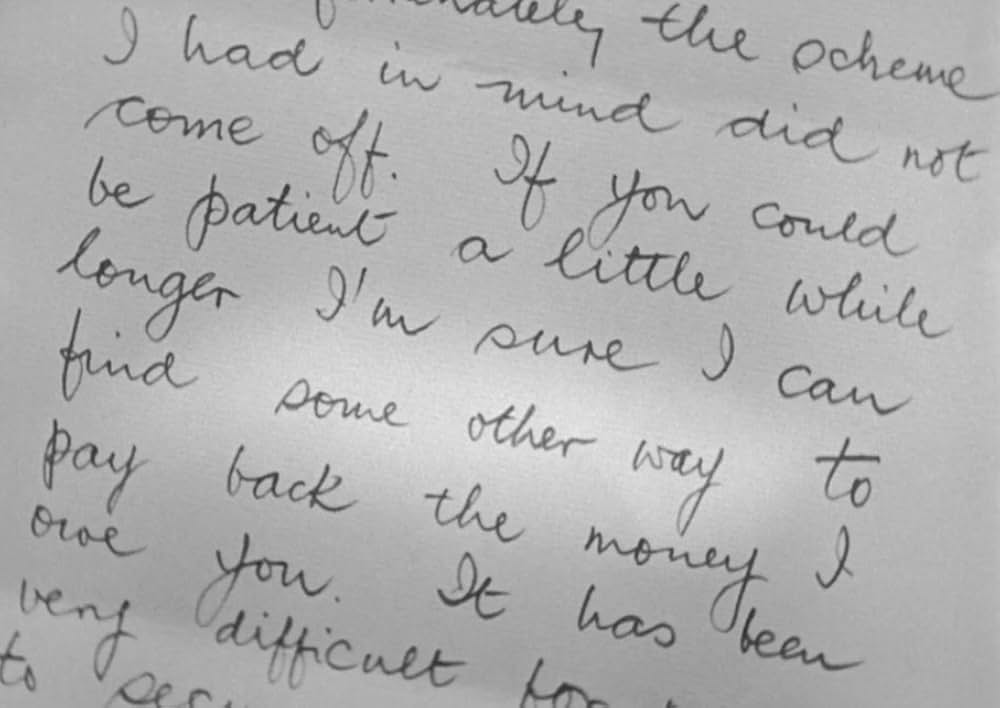 the scheme
I had in mind did not
come off. If you could
be patient a little while
longer I'm sure I can
find some other way to
pay back the money I
owe you. It has been
very difficult for
to